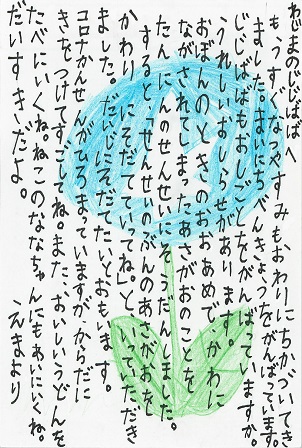 ねじまのじじばばへ
もうすぐなつやすみもおわりにちかづいてき
ました。まいにちべんきょうをがんばっています。
じじばばもおしごとをがんばっていますか
うれしいおしらせがあります。
おぼんのときのおおあめで、かわに
ながされてしまったあさがおのことを
たんにんのせんせいにそうだんしました。
すると「せんせいのぶんのあさがおを
かわりにそだてていってね」といっていただき
ました。だいじにそだてたいとおもいます。
コロナかんせんがひろまっていますがからだに
きをつけてすごしてね。また、おいしいうどんを
たべにいくね。ねこのななちゃんにもあいにいくね。
だいすきだよ。 えまより